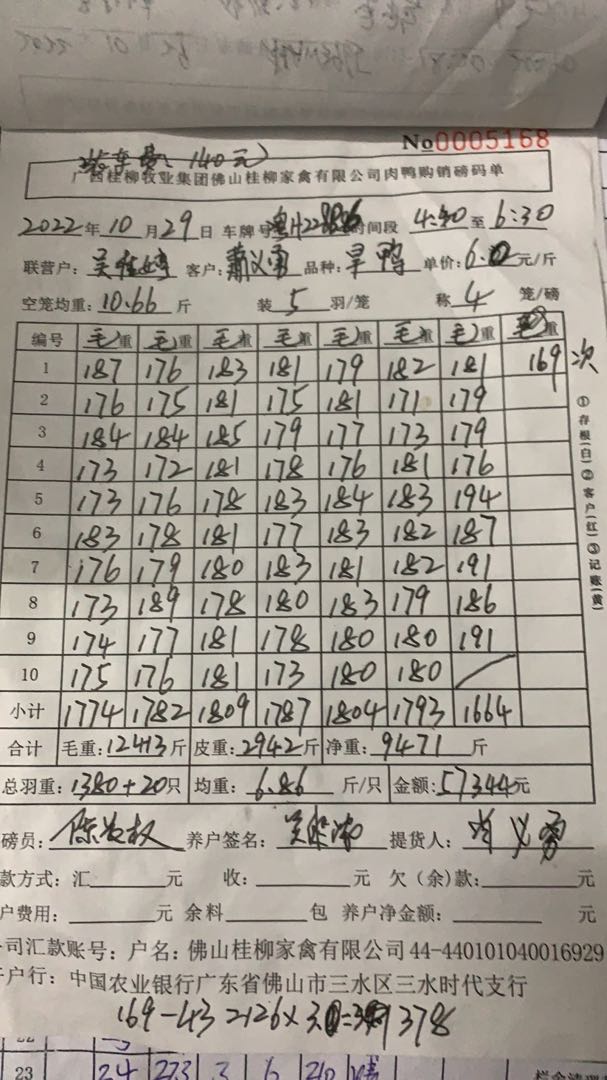 No0005168
装车费: 140元
广西桂柳牧业集团佛山桂柳家禽有限公司肉鸭购销磅码单
2022年10月29日 车牌号 时间段 4:40至6:30
联营户: 客户: 品种:旱鸭 单价:6. 元/斤
空笼均重:10.66斤 装5羽/笼 称4笼/磅
编号 毛重 毛重 毛重 毛重 毛重 毛重 毛重 毛重
1 187 176 183 181 179 182 181 169 次
2 176 175 181 175 181 171 179
3 184 184 185 179 177 173 179
4 173 172 181 178 176 181 176
5 173 176 178 183 184 183 194
6 183 178 181 177 183 182 187
7 176 179 180 183 181 182 191
8 173 189 178 180 183 179 186
9 174 177 181 178 180 180 191
10 175 176 181 173 180 180
小计 1774 1782 1809 1787 1804 1793 1664
合计 毛重:12413斤 皮重:2942斤 净重:9471斤
总羽重:1380+20只 均重:6.86斤/只 金额:57344元
①存根(白)②客户(红)③记账(黄)
磅员: 养户签名: 提货人:
款方式:汇 元 收: 元 欠(余)款: 元
户费用: 元 余料 包 养户净金额: 元
司汇款账号:户名:佛山桂柳家禽有限公司44-440101040016929
户行:中国农业银行广东省佛山市三水区三水时代支行
169-43 =126×3. = 378
23 24 223 3 6 210